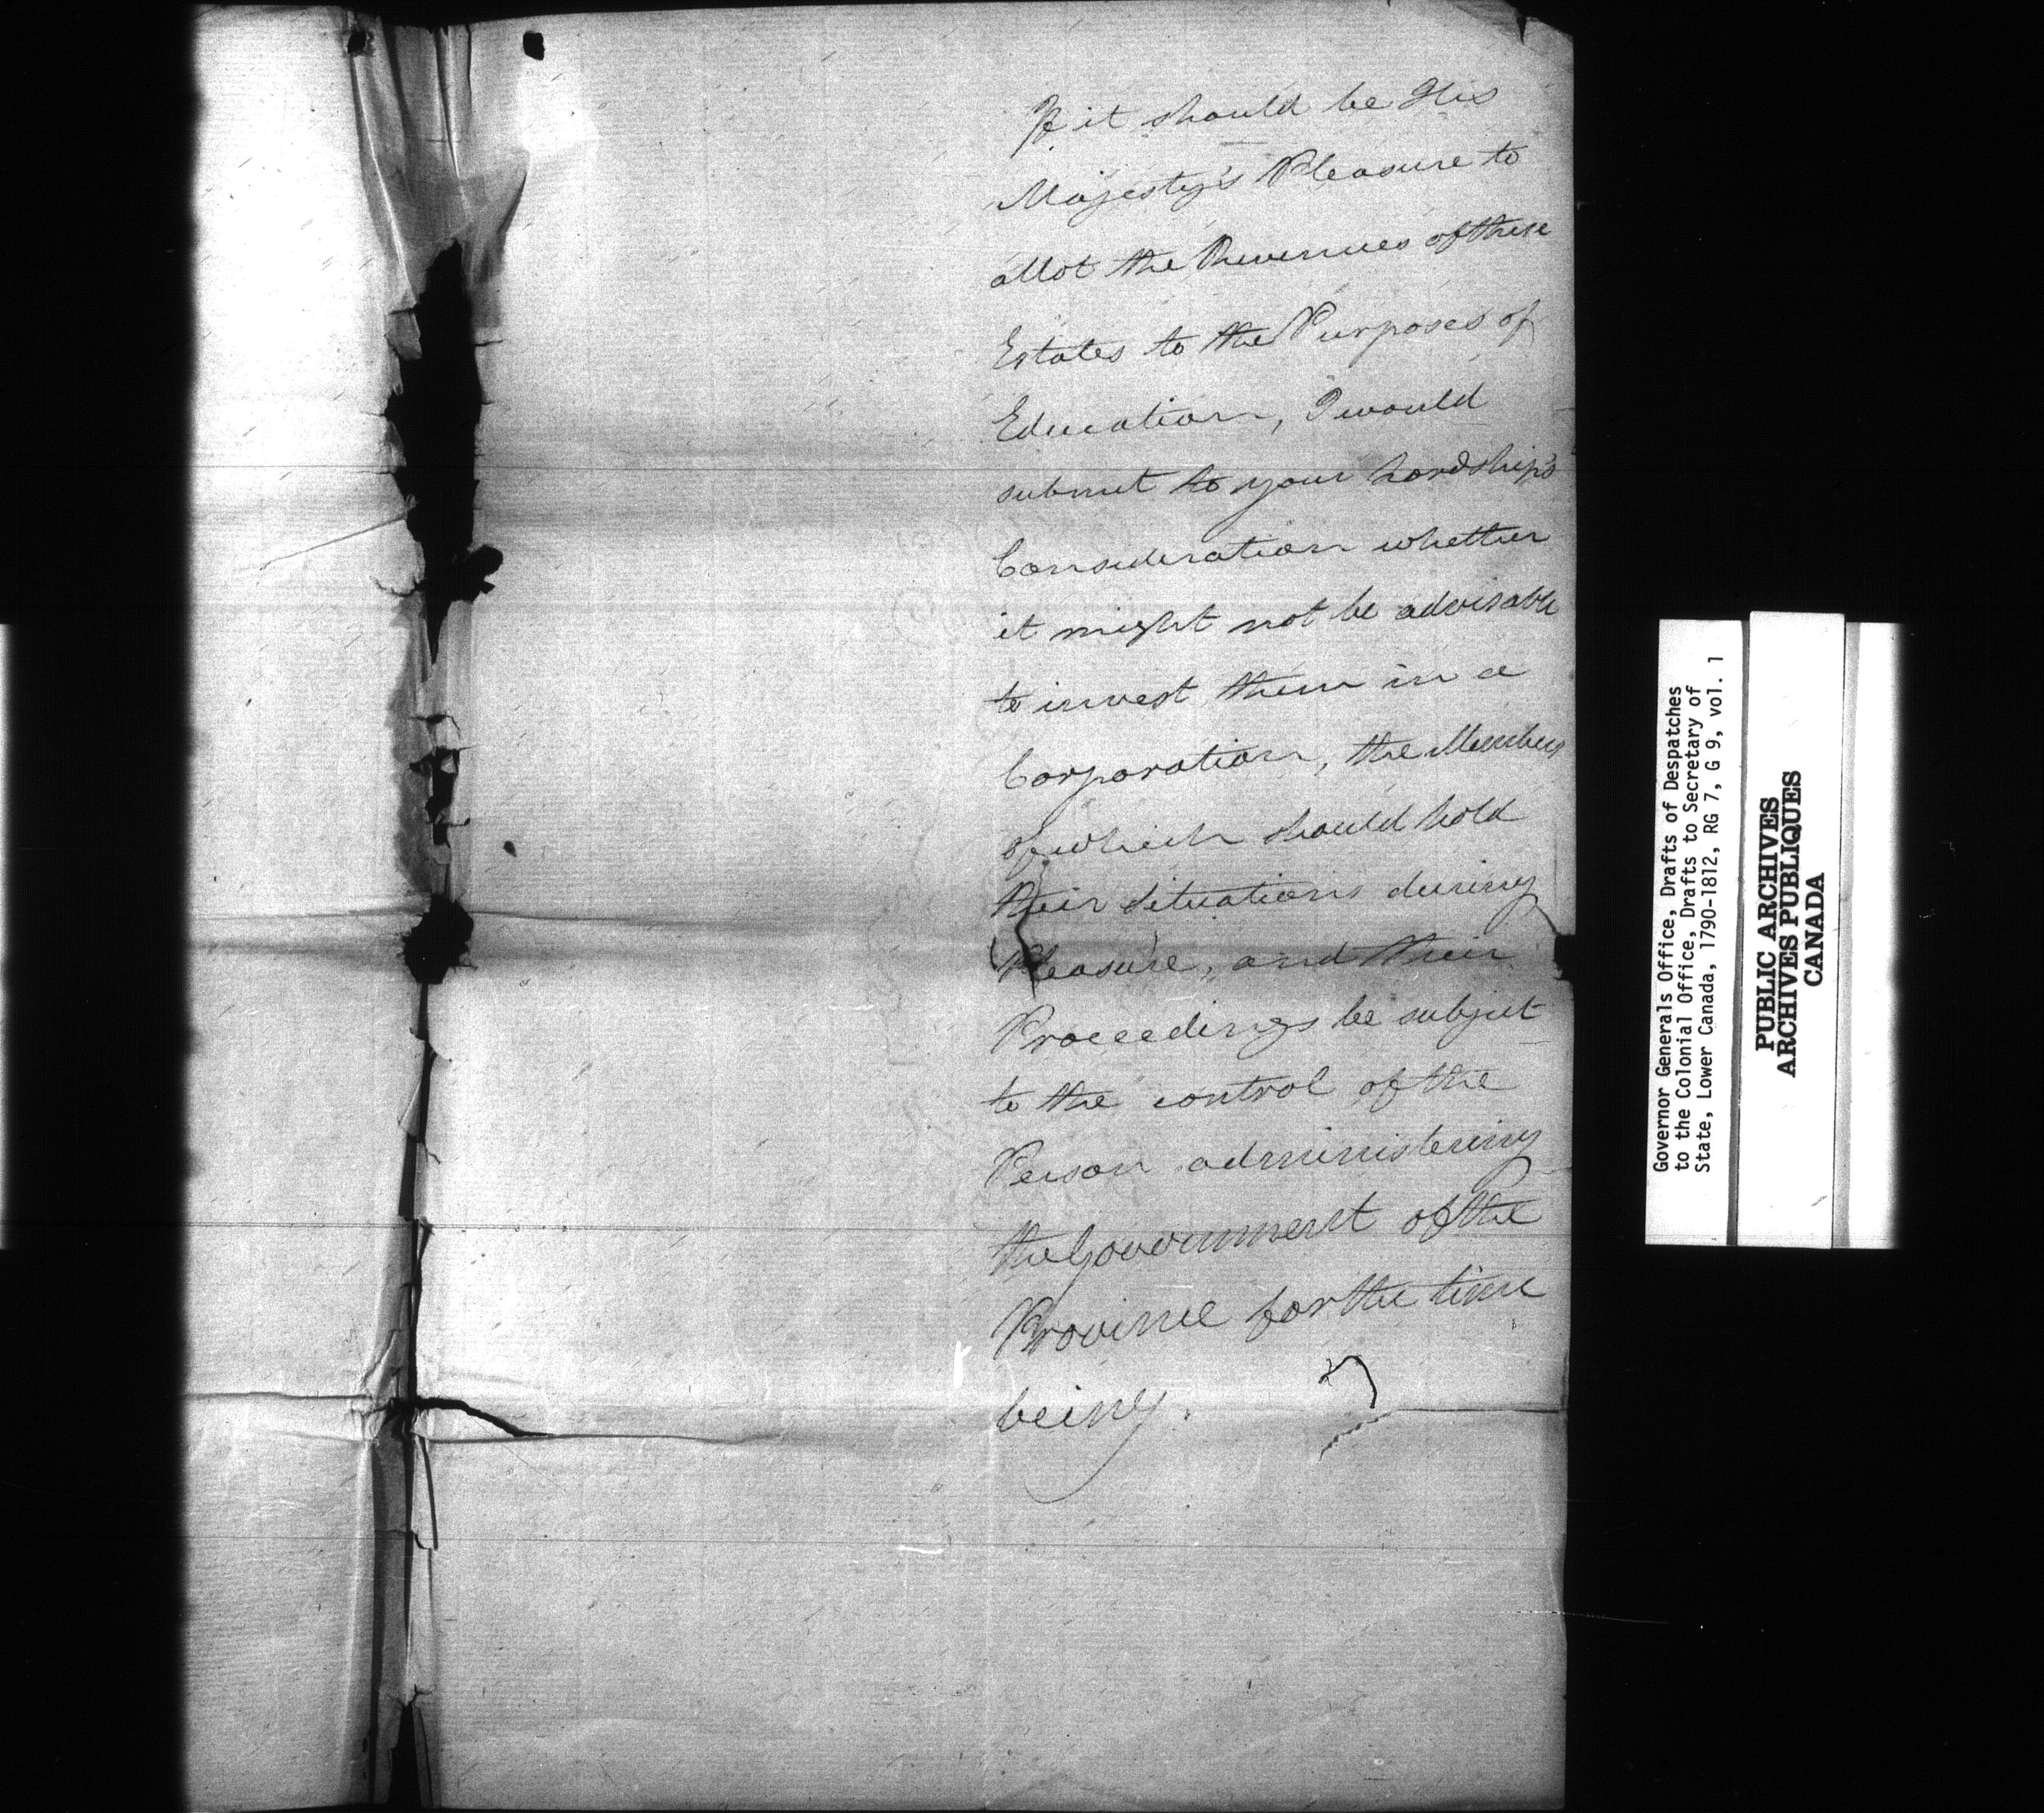 If it should be His
Majesty's Pleasure to
allot the Revenues of these
Estates to the Purposes of
Education, I would
submit to your Lordship's
Consideration whether
it might not be advisable
to invest them in a
Corporation, the Members
of which should hold
their situations during
Pleasure, and their
Proceedings be subject
to the control of the
Person administering
the Government of the
Province for the time
being.
Governor Generals Office, Drafts of Despatches
to the Colonial Office, Drafts to Secretary of
State, Lower Canada, 1790-1812, RG 7, G 9, vol. 1
PUBLIC ARCHIVES
ARCHIVES PUBLIQUES
CANADA